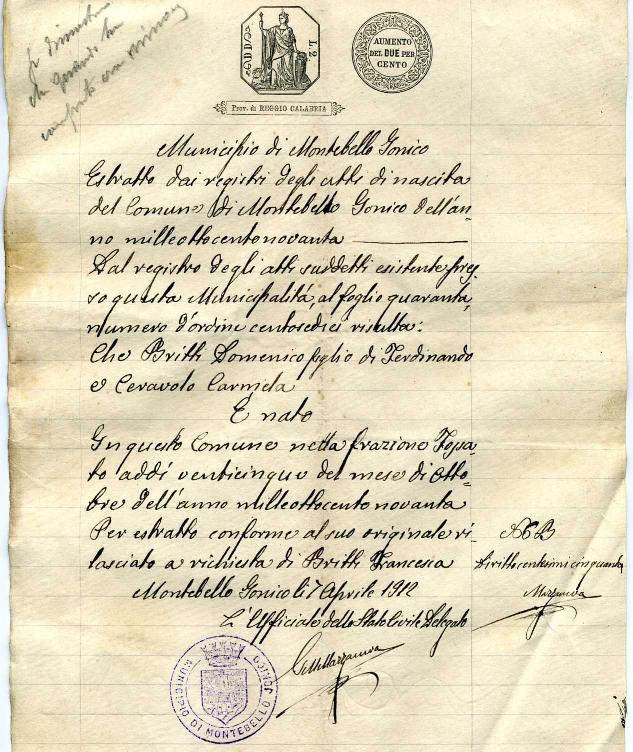 L. 2.
AUMENTO
DEL DUE PER
CENTO
Prov. di REGGIO CALABRIA
Municipio di Montebello Gonico
Estratto dai registri degli atti di nascita
del Comune di Montebello Gonico dell'an-
no milleottocentonovanta
Dal registro degli atti suddetti esistente pres-
so questa Municipalità, al foglio quaranta,
numero d'ordine centosedici risulta:
Che Britti Domenico figlio di Ferdinando
e Ceravolo Carmela
È nato
In questo Comune nella frazione Fossa-
to addì venticinque del mese di Otto-
bre dell'anno milleottocento novanta
Per estratto conforme al suo originale ri-
lasciato a richiesta di Britti Francesca
Montebello Gonico li 7 Aprile 1912
L'Uffiziale dello Stato Civile Delegato
Diritto centesimi cinquanta
MUNICIPIO DI MONTEBELLO JONICO